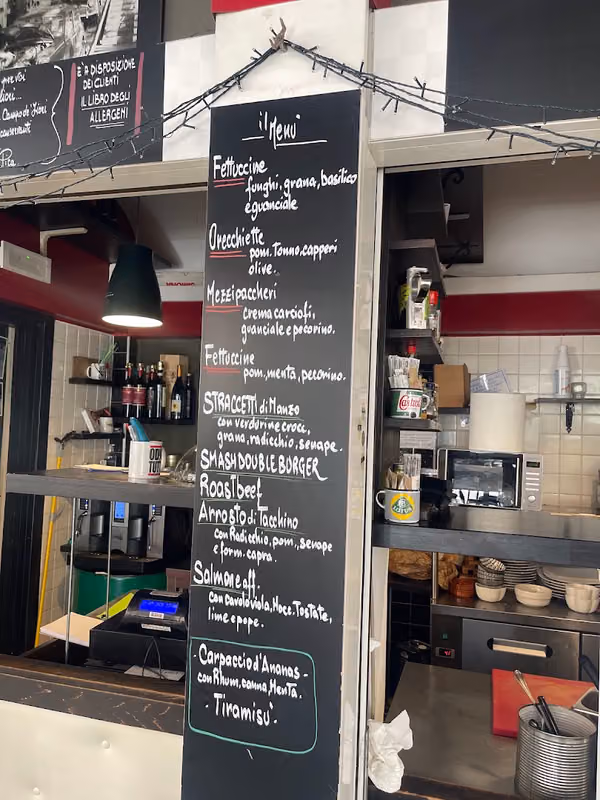 È A DISPOSIZIONE
DEI CLIENTI
IL LIBRO DEGLI
ALLERGENI
Campo de' Fiori
il Menù
Fettuccine
funghi, grana, basilico
e guanciale
Orecchiette
pom. Tonno, capperi
olive.
Mezzipaccheri
crema carciofi,
guanciale e pecorino.
Fettuccine
pom., menta, pecorino.
STRACCETTI di Manzo
con verdurine crocc.
grana, radicchio, senape.
SMASH DOUBLE BORGER
Roast beef
Arrosto di Tacchino
con Radicchio, pom., senape
e form. capra.
Salmone aff.
con cavolo viola, Nocc. Tostate,
lime e pepe.
- Carpaccio d'Ananas -
con Rhum, canna, Menta.
- Tiramisù -
Castrol
LOTUS